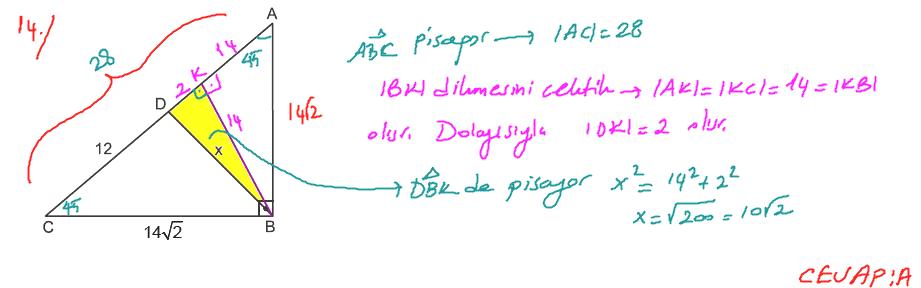 14.)
A
28
14
45
K
2
D
14√2
14
12
x
45
C
B
14√2
ABC pisagor → |AC|=28
|BK| dikmesini çektik → |AK|=|KC|=14=|KB|
olur. Dolayısıyla |DK|=2 olur.
DBK de pisagor x² = 14²+2²
x=√200=10√2
CEVAP:A